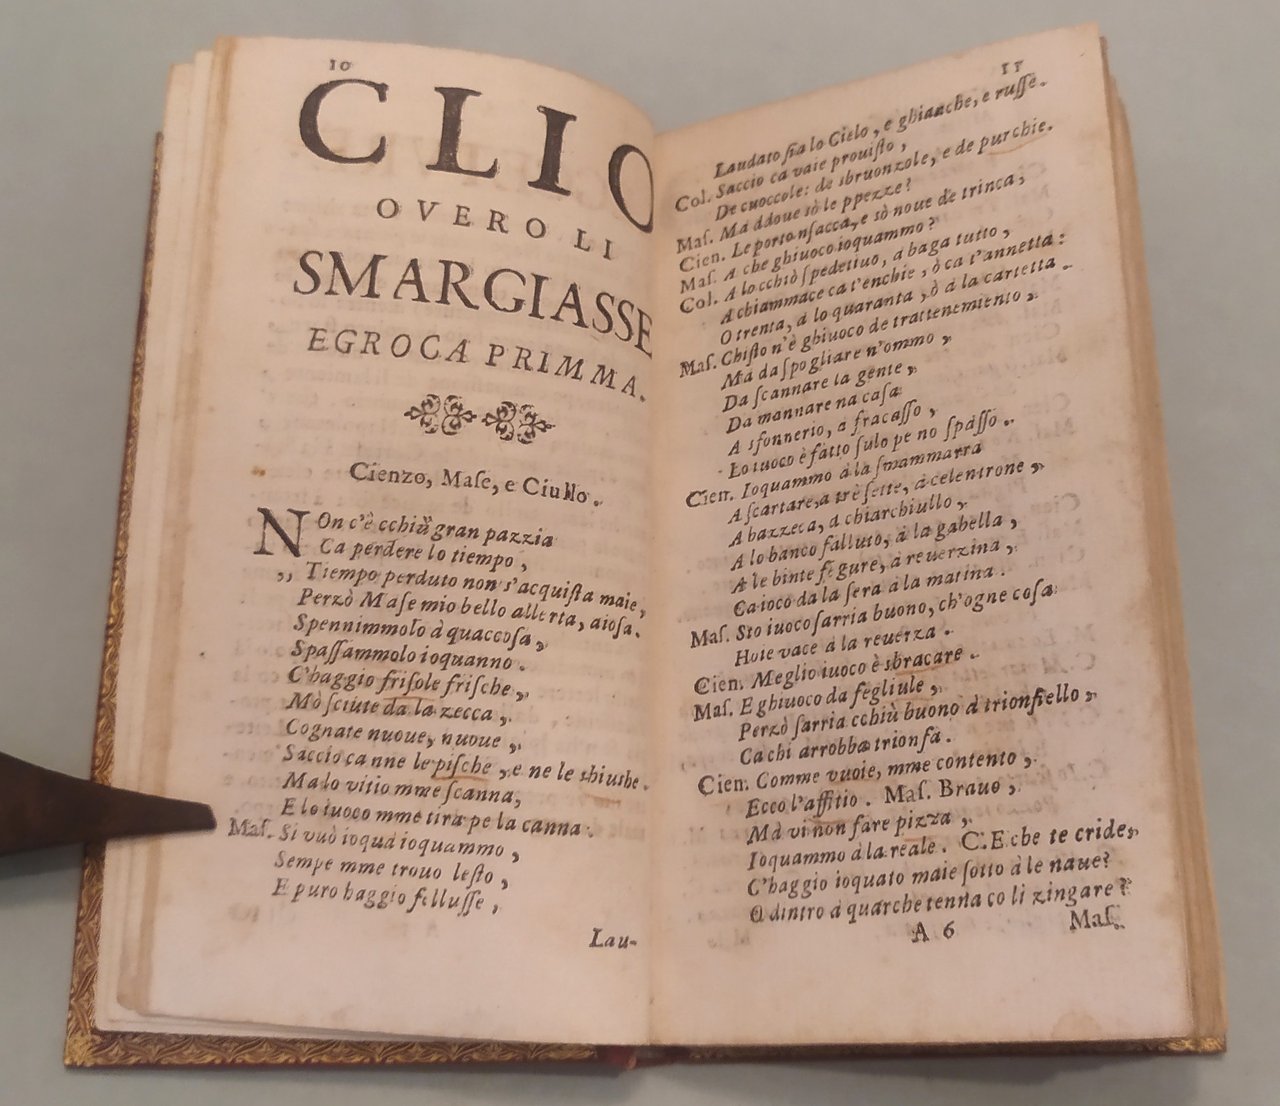 10
CLIO
OVERO LI
SMARGIASSE
EGROCA PRIMMA.
Cienzo, Mase, e Ciullo.
NOn c'è cchiù gran pazzia
Ca perdere lo tiempo,
,, Tiempo perduto non s'acquista maie,
Perzò Mase mio bello allerta, aiosa.
Spennimmolo à quaccosa,
Spassammolo ioquanno.
C'haggio frisole frische,
Mò sciute da la zecca,
Cognate nuoue, nuoue,
Saccio ca nne le pische, e ne le shiushe.
Ma lo vitio mme scanna,
E lo iuoco mme tira pe la canna.
Mas. Si vuò ioquà ioquammo,
Sempe mme trouo lesto,
E puro haggio fellusse,
Lau-
11
Laudato sia lo Cielo, e ghianche, e russe.
Col. Saccio ca vaie prouisto,
De cuoccole: de sbruonzole, e de purchie.
Mas. Ma ddoue sò le ppezze?
Cien. Le porto nsacca, e sò noue de trinca,
Mas. A che ghiuoco ioquammo?
Col. A lo cchiò spedetiuo, a baga tutto,
A chiammace ca t'enchie, ò ca t'annetta:
O trenta, a lo quaranta, ò a la carretta.
Mas. Chisto n'è ghiuoco de trattenemiento,
Ma da spogliare n'ommo,
Da scannare la gente,
Da mannare na casa
A sfonnerio, a fracasso,
Lo iuoco è fatto sulo pe no spasso.
Cien. Ioquammo à la smammarra
A scartare, a trè sette, à celentrone,
A bazzeca, à chiarchiullo,
A lo banco falluto, à la gabella,
A le binte figure, à reuerzina,
Ca ioco da la sera à la matina.
Mas. Sto iuoco sarria buono, ch'ogne cosa
Hoie vace à la reuerza.
Cien. Meglio iuoco è sbracare.
Mas. E ghiuoco da fegliule,
Perzò sarria cchiù buono à trionfiello,
Ca chi arrobba trionfa.
Cien. Comme vuoie, mme contento,
Ecco l'affitio. Mas. Brauo,
Mà vi non fare pizza,
Ioquammo à la reale. C. E che te cride,
C'haggio ioquato maie sotto à le naue?
O dintro à quarche tenna co li zingare?
A 6
Mas.